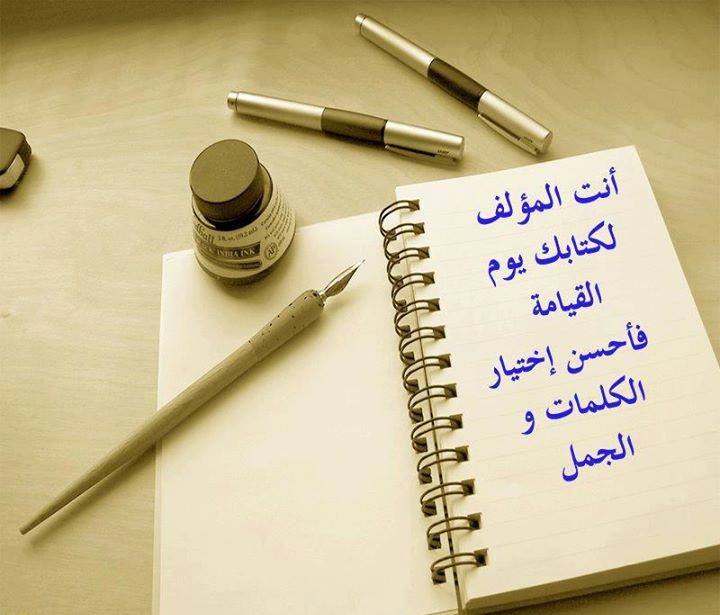 أنت المؤلف
لكتابك يوم
القيامة
فأحسن إختيار
الكلمات و
الجمل
INDIA INK